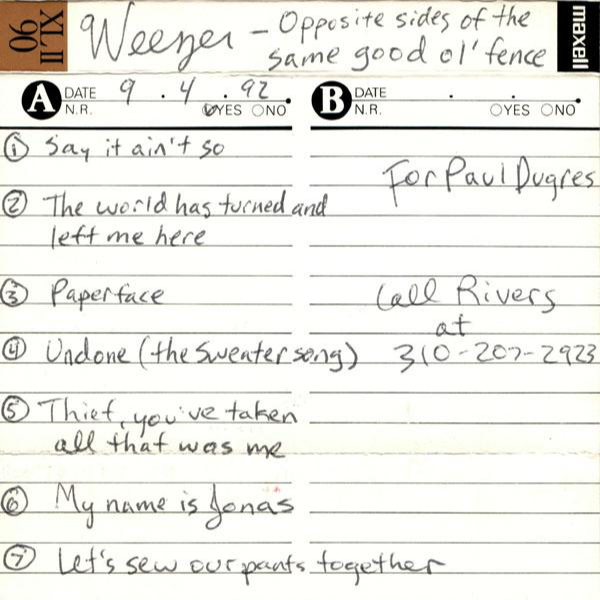 XLII
90
Weezer - Opposite sides of the
same good ol' fence
maxell
A DATE 9 . 4 . 92
N.R. YES NO
B DATE . .
N.R. YES NO
① Say it ain't so
For Paul Dugres
② The world has turned and
left me here
③ Paperface
Call Rivers
at
④ Undone (the sweater song)
310-207-2923
⑤ Thief, you've taken
all that was me
⑥ My name is Jonas
⑦ Let's sew our pants together